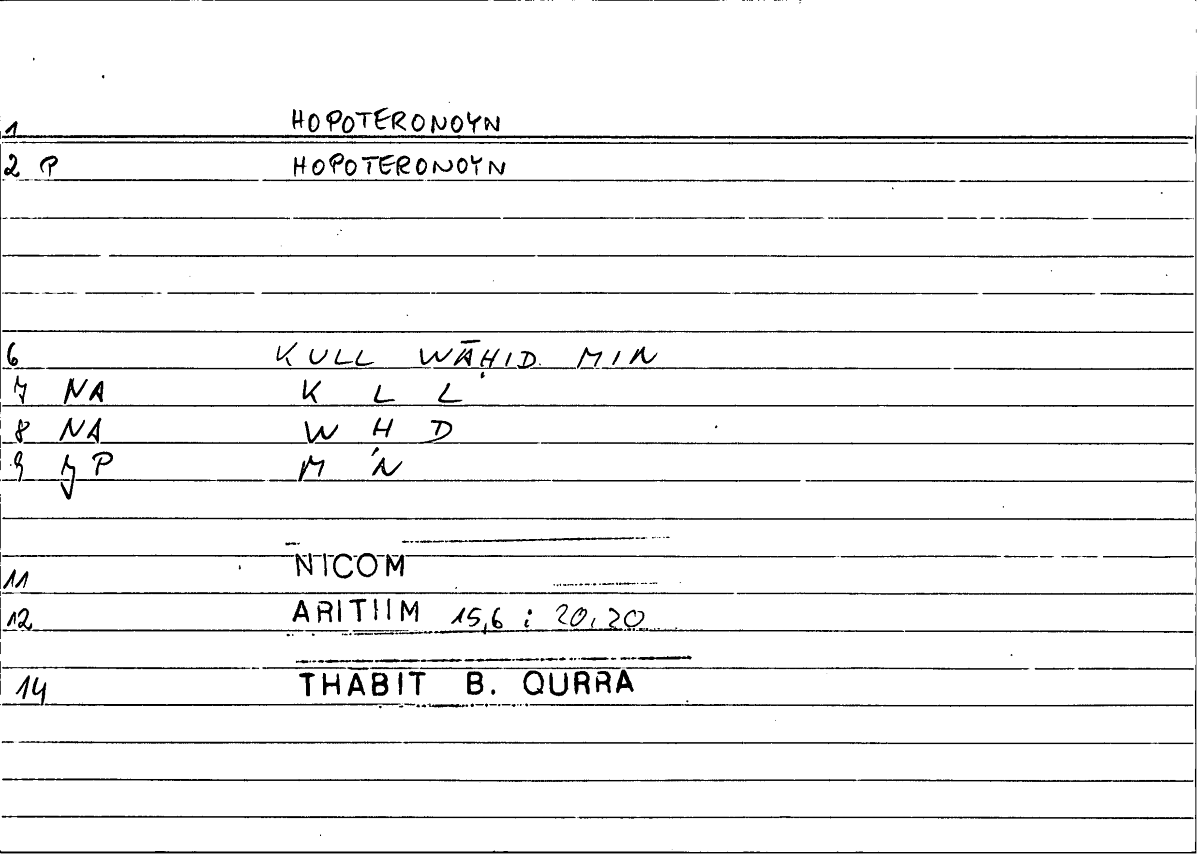 1 HOPOTERONOYN
2 P HOPOTERONOYN
6 KULL WĀḤID MIN
7 NA K L L
8 NA W Ḥ D
9 JP M ʾN
11 NICOM
12 ARITIIM 15,6 : 20,20
14 THABIT B. QURRA